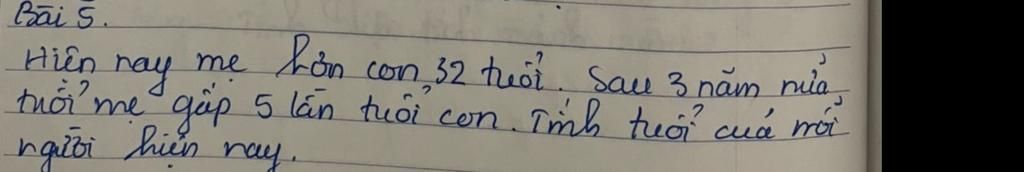 Bài 5.
Hiện nay mẹ hơn con 32 tuổi. Sau 3 năm nửa
tuổi mẹ gấp 5 lần tuổi con. Tính tuổi cuả mỗi
người hiện nay.